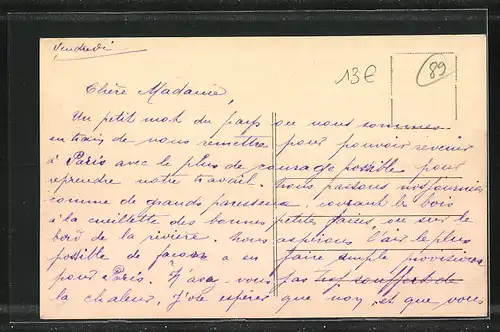 Vendredi
13€
89
Chère Madame,
Un petit mot du pays ou nous sommes
en train de nous remettre pour pouvoir revenir
à Paris avec le plus de courage possible pour
reprendre notre travail. Nous passons nos journées
comme de grands paresseux, courant le bois
à la cueillette des bonnes petites faines, ou sur le
bord de la rivière. Nous aspirons l'air le plus
possible de façon a en faire ample provisions
pour Paris. N'avez-vous pas trop souffert de
la chaleur, J'ose espérer que non, et que vous